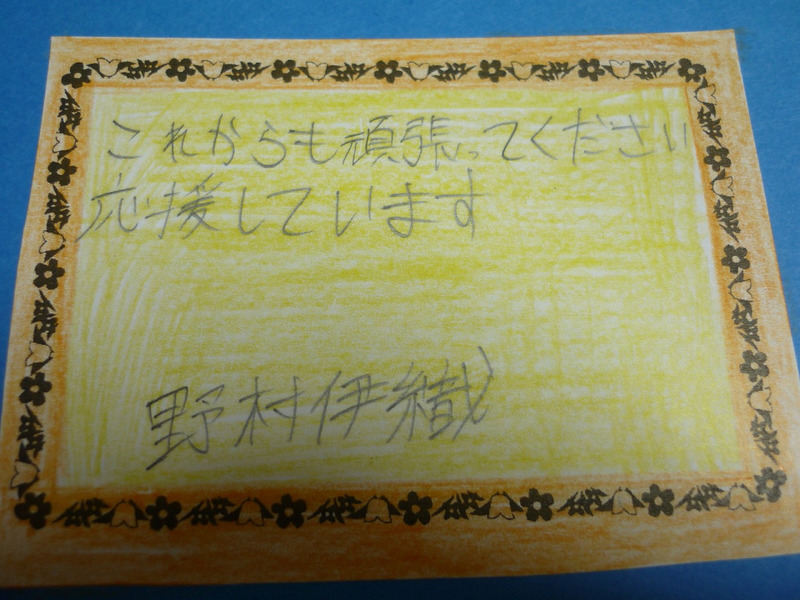 これからも頑張ってください
応援しています
野村伊織